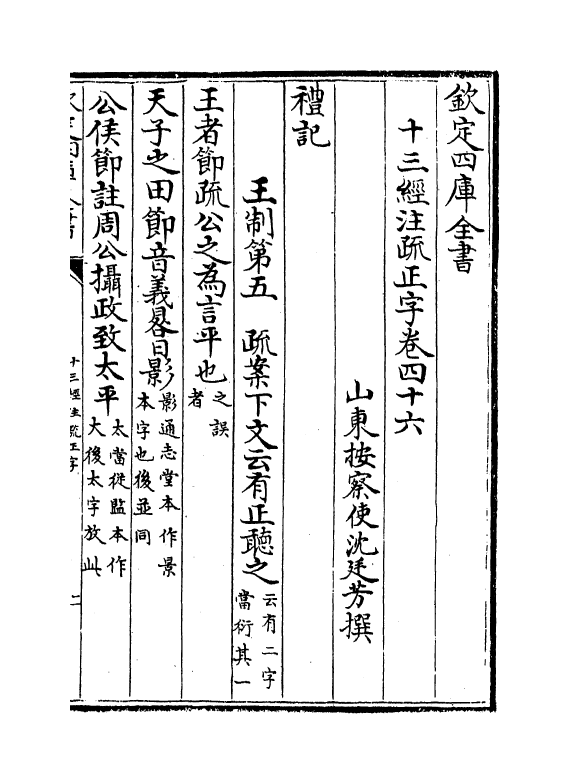 欽定四庫全書
十三經注疏正字卷四十六
山東按察使沈廷芳撰
禮記
王制第五　疏案下文云有正聽之云有二字
當衍其一
王者節疏公之為言平也之誤
者
天子之田節音義晷日影影通志堂本作景
本字也後並同
公侯節註周公攝政致太平太當從監本作
大後太字放此
十三經注疏正字
二